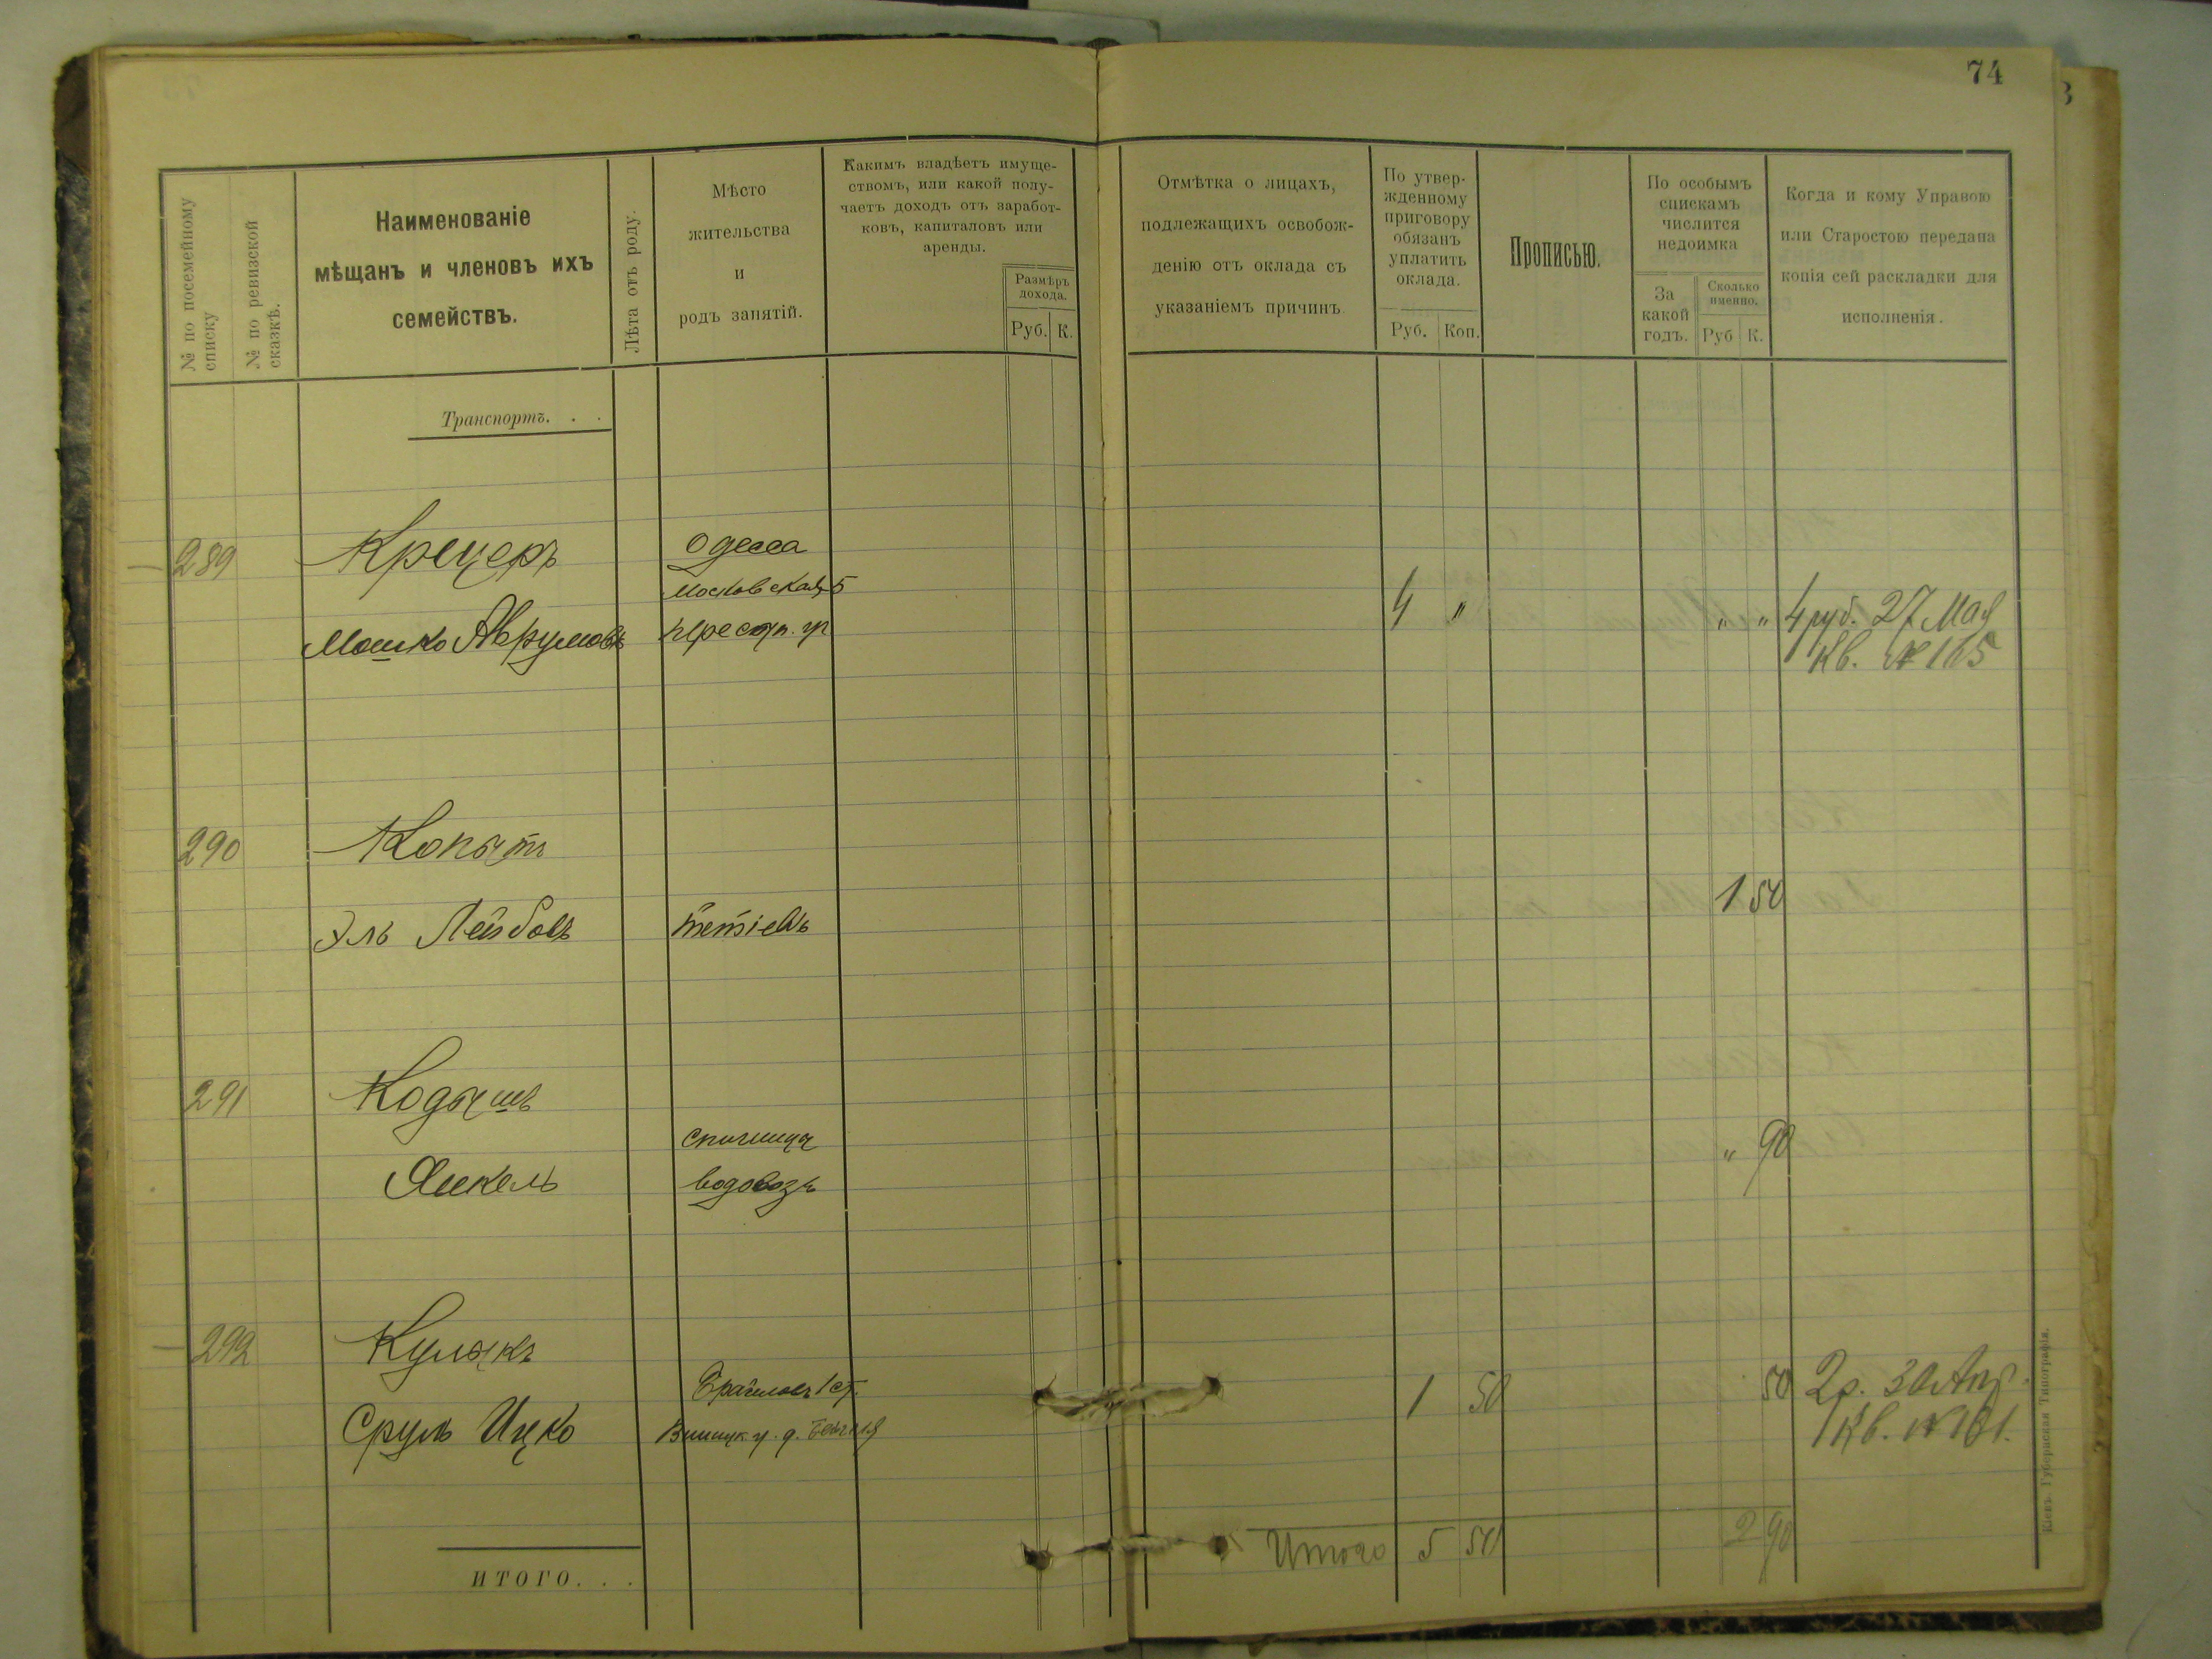 74
№ по посемейному списку
№ по ревизской сказкѣ.
Наименованіе
мѣщанъ и членовъ ихъ
семействъ.
Лѣта отъ роду.
Мѣсто
жительства
и
родъ занятій.
Какимъ владѣетъ имуще-
ствомъ, или какой полу-
чаетъ доходъ отъ заработ-
ковъ, капиталовъ или
аренды.
Размѣръ
дохода.
Руб. К.
Отмѣтка о лицахъ,
подлежащихъ освобож-
денію отъ оклада съ
указаніемъ причинъ
По утвер-
жденному
приговору
обязанъ
уплатить
оклада.
Руб. Коп.
Прописью.
По особымъ
спискамъ
числится
недоимка
За
какой
годъ.
Сколько
именно.
Руб К.
Когда и кому Управою
или Старостою передана
копія сей раскладки для
исполненія.
Транспортъ. . .
289 Крецеръ Одесса
Московская 5
Мошко Аврумовъ 4 " " " 4 руб. 27 Мая
Кв. № 165
290 Копытъ
Эль Лейбовъ Тетіевъ 1 50
291 Кодышъ
Спичинцы
Янкель водовозъ " 90
292 Кулыкъ
Браиловъ 1 ст.
Сруль Ицко 1 50 50 2р. 30 Апр.
Кв. № 161.
Итого 5 50 2 90
ИТОГО. . .
Кіевъ. Губернская Типографія.